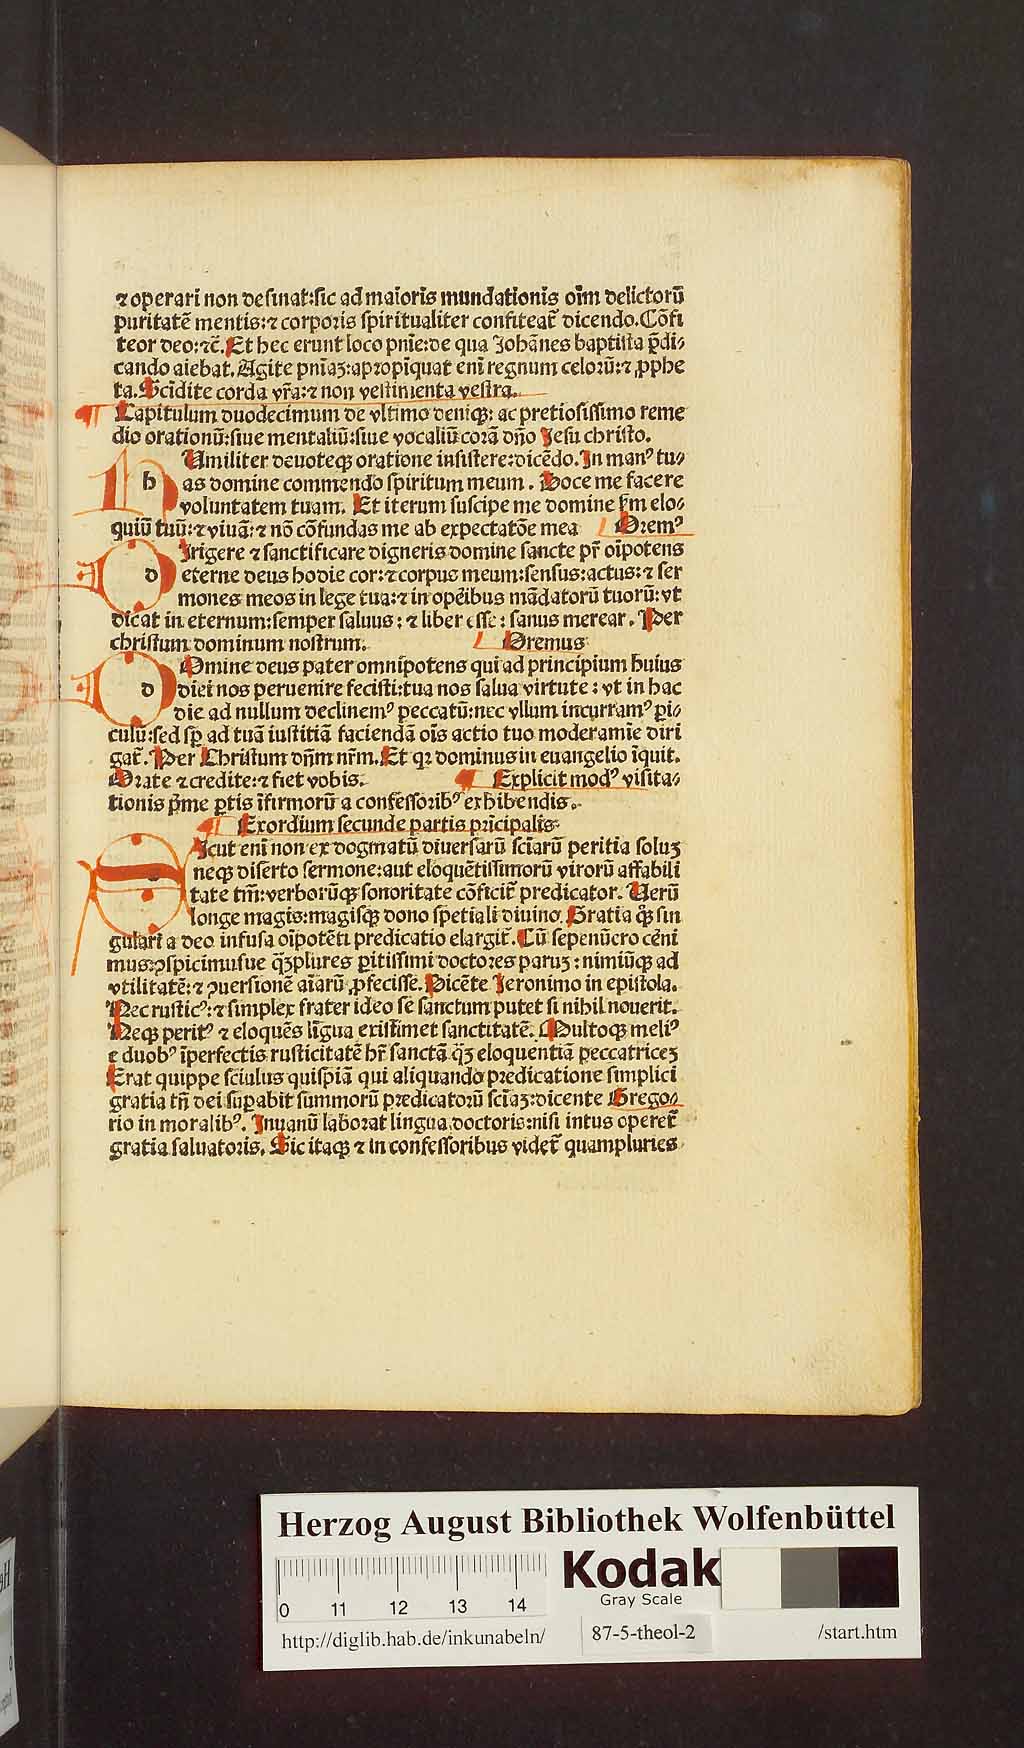 ⁊ operari non desinat̃:sic ad maioris mundationis oĩm delictorũ
puritatẽ mentis:⁊ corporis spiritualiter confiteat̃ dicendo.Cõfi
teor deo:⁊c̃.Et hec erunt loco pnĩe:de qua Johãnes baptista p̃di⸗
cando aiebat.Agite pnĩaꝫ:apropĩquat enĩ regnum celorũ:⁊ ꝓphe
ta.Scĩdite corda vr̃a:⁊ non vestimenta vestra.
¶ Capitulum duodecimum de vltimo deniqꝫ: ac pretiosissimo reme
dio orationũ:siue mentaliũ:siue vocaliũ corã dño Jesu christo.
h Umiliter deuoteqꝫ oratione insistere:dicẽdo.In manꝰ tu⸗
as domine commendo spiritum meum. Doce me facere
voluntatem tuam. Et iterum suscipe me domine f̃m elo⸗
quiũ tuũ:⁊ viuã:⁊ nõ cõfundas me ab expectatõe mea Oremꝰ
d Irigere ⁊ sanctificare digneris domine sancte pr̃ oĩpotens
eterne deus hodie cor:⁊ corpus meum:sensus:actus:⁊ ser
mones meos in lege tua:⁊ in opẽibus mãdatorũ tuorũ:vt
dicat in eternum:semper saluus:⁊ liber esse: sanus merear. Per
christum dominum nostrum. Oremus
d Omine deus pater omnipotens qui ad principium huius
diei nos peruenire fecisti:tua nos salua virtute:vt in hac
die ad nullum declinemꝰ peccatũ:nec vllum incurramꝰ pi⸗
culũ:sed sp̃ ad tuã iustitiã faciendã oĩs actio tuo moderamĩe diri
gat̃. Per Christum dñm nr̃m.Et qꝛ dominus in euangelio ĩquit.
Orate ⁊ credite:⁊ fiet vobis. ¶ Explicit modꝰ visita⸗
tionis p̃me ꝑtis ĩfirmorũ a confessoribꝰ exhibendis.
¶ Exordium secunde partis prĩcipalis
s Icut enĩ non ex dogmatũ diuersarũ sciarũ peritia soluꝫ
neqꝫ diserto sermone:aut eloquẽtissimorũ virorũ affabili
tate tm̃:verborũqꝫ sonoritate cõficit̃ predicator. Uerũ
longe magis:magisqꝫ dono spetiali diuino. Gratia q̃ꝫ sin
gulari a deo infusa oĩpotẽti predicatio elargit̃.Cũ sepenũcro cẽni
mus:ꝯspicimusue q̃ꝫplures ꝑitissimi doctores paruꝫ:nimiũqꝫ ad
vtilitatẽ:⁊ ꝯuersionẽ aĩarũ ꝓfecisse.Dicẽte Jeronimo in epistola.
Nec rusticꝰ:⁊ simplex frater ideo se sanctum putet si nihil nouerit.
Neqꝫ peritꝰ ⁊ eloquẽs lĩgua existĩmet sanctitatẽ. Multoqꝫ meliꝰ
e duobꝰ ĩperfectis rusticitatẽ hr̃ sanctã q̃ꝫ eloquentiã peccatriceꝫ
Erat quippe sciulus quispiã qui aliquando predicatione simplici
gratia tñ dei sup̃abit summorũ predicatorũ sciãꝫ:dicente Grego⸗
rio in moralibꝰ. Inuanũ laborat lingua doctoris:nisi intus operet̃
gratia saluatoris. Sic itaqꝫ ⁊ in confessoribus videt̃ quampluries
Herzog August Bibliothek Wolfenbüttel
Kodak
Gray Scale
0 11 12 13 14
http://diglib.hab.de/inkunabeln/ 87-5-theol-2 /start.htm